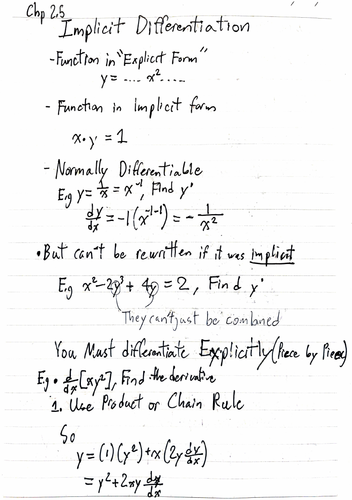 Chp 2.5
Implicit Differentiation
- Function in "Explicit Form"
y = .... x² .....
- Function in Implicit form
x·y = 1
- Normally Differentiable
E.g y = 1/x = x⁻¹, Find y'
dy/dx = -1(x⁻¹⁻¹) = - 1/x²
• But can't be rewritten if it was implicit
E.g x² - 2y³ + 4y = 2, Find y'
They can't just be combined
You Must differentiate Explicitly (Piece by Piece)
E.g • d/dx [xy²], Find the derivative
1. Use Product or Chain Rule
So
y = (1)(y²) + x(2y dy/dx)
= y² + 2xy dy/dx